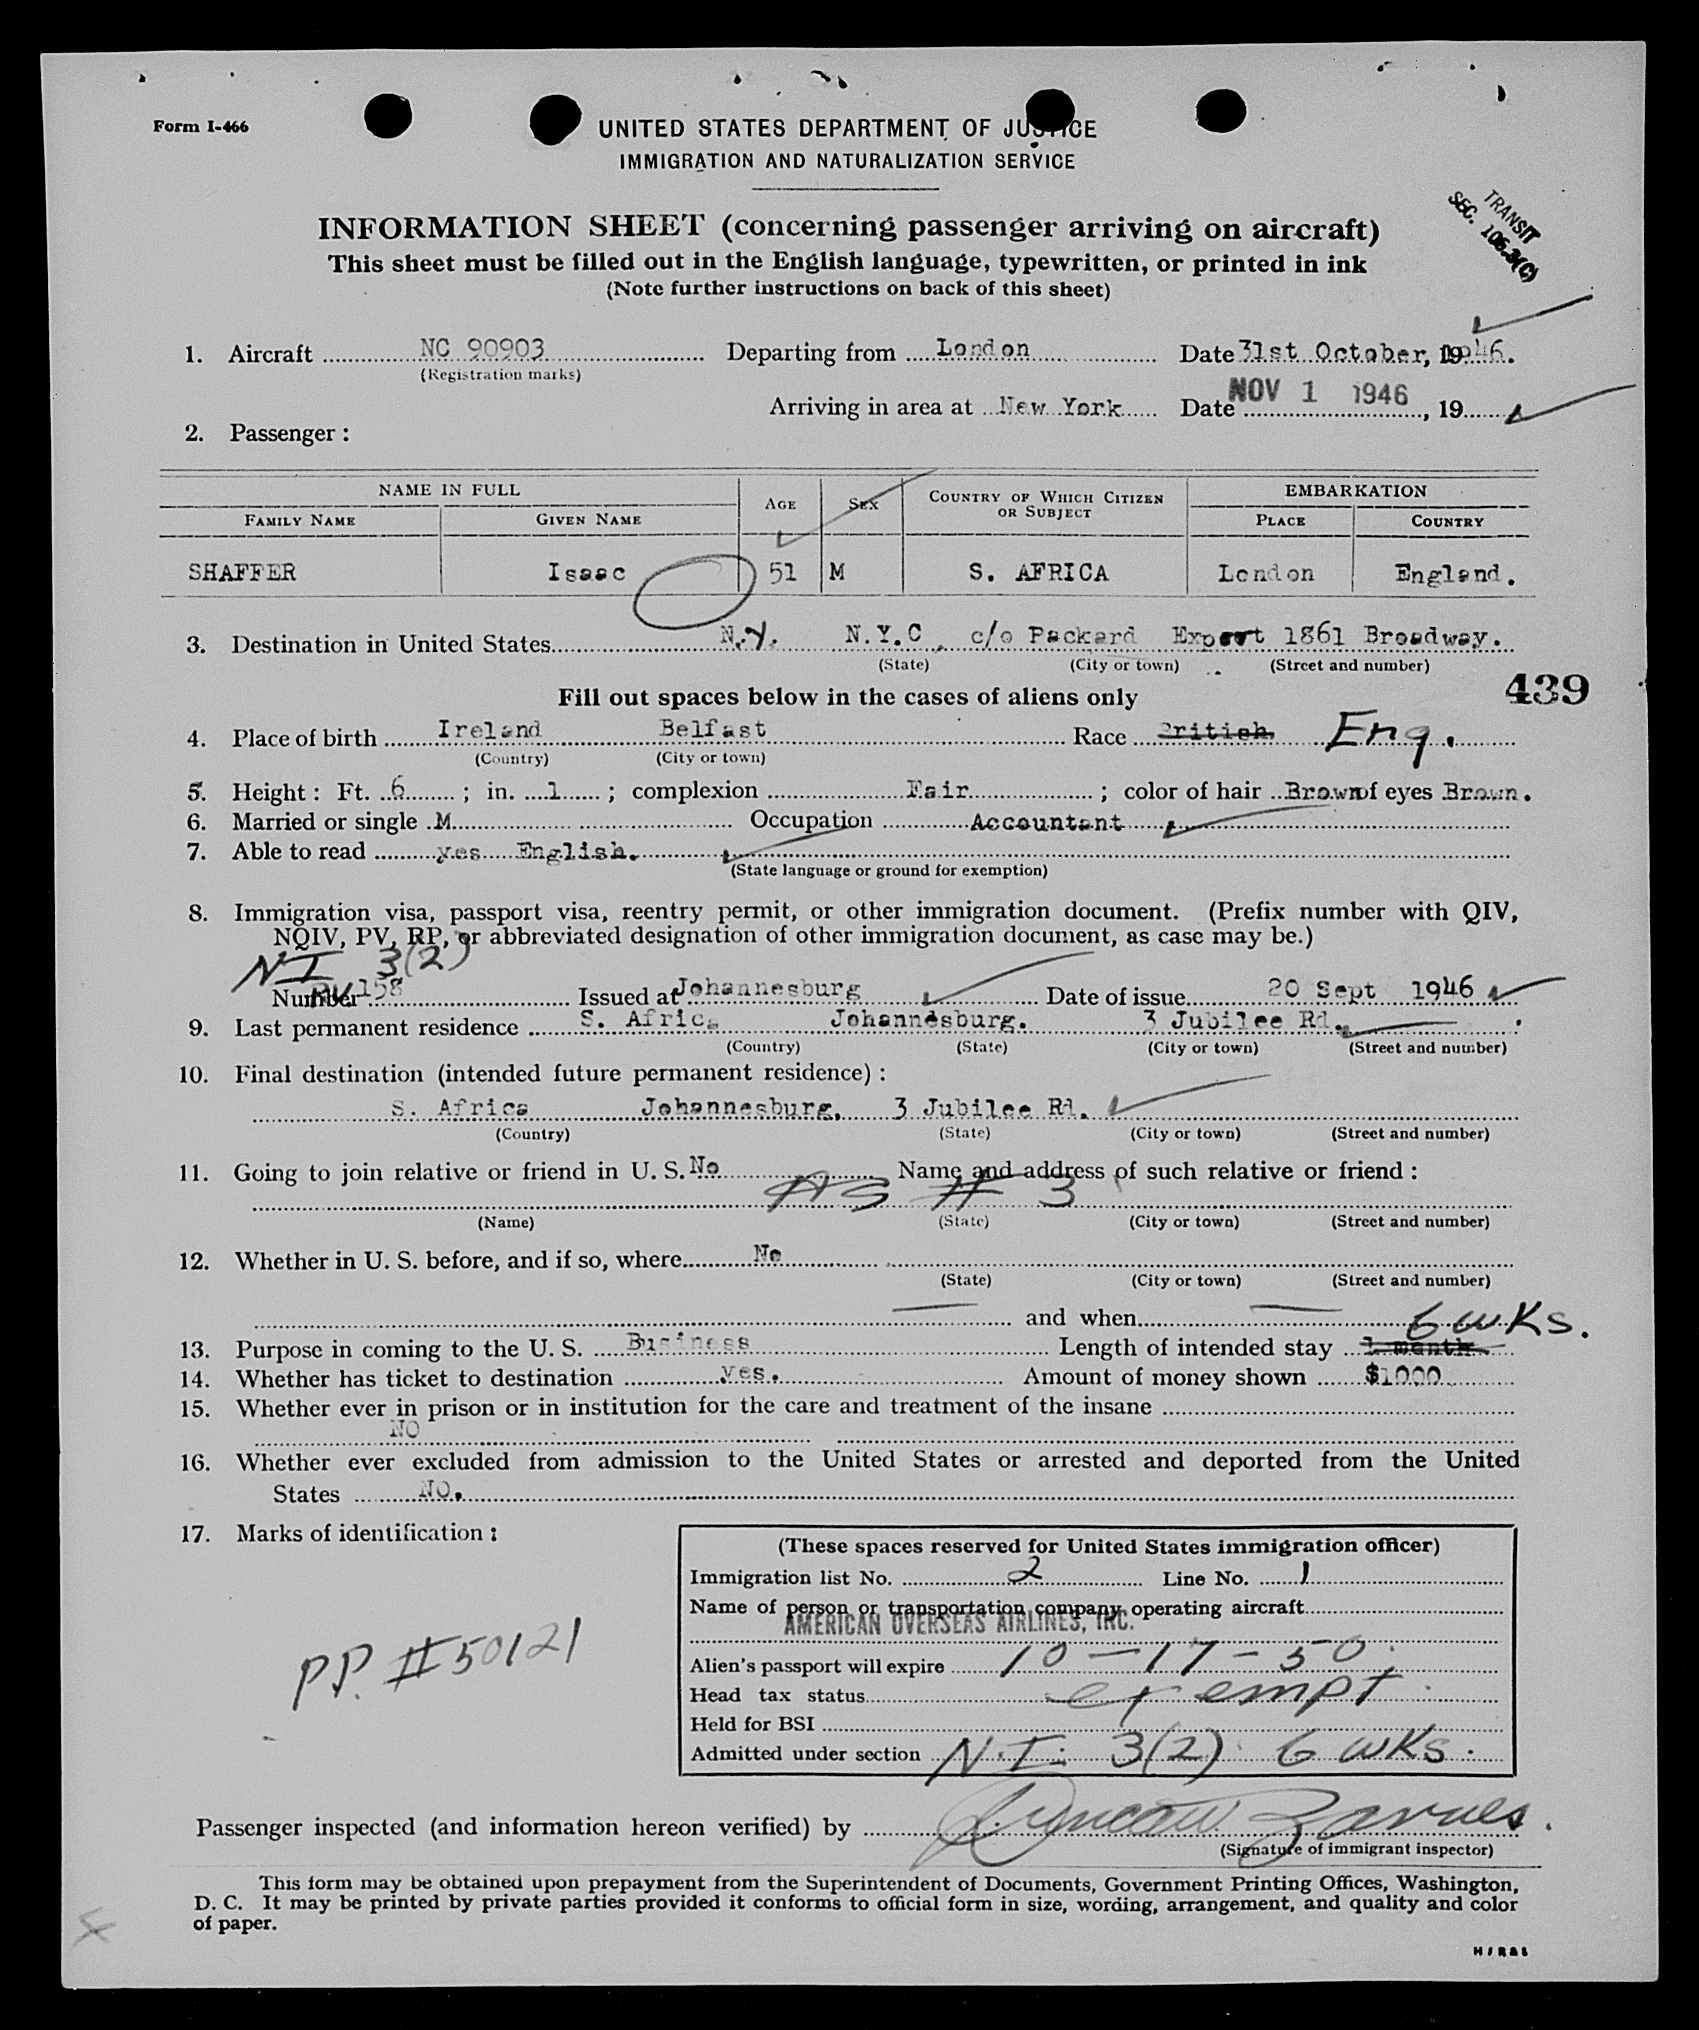 Form I-466
UNITED STATES DEPARTMENT OF JUSTICE
IMMIGRATION AND NATURALIZATION SERVICE
TRANSIT
SEC. 105.3(C)
INFORMATION SHEET (concerning passenger arriving on aircraft)
This sheet must be filled out in the English language, typewritten, or printed in ink
(Note further instructions on back of this sheet)
1. Aircraft NC 90903 Departing from London Date 31st October, 1946.
(Registration marks)
Arriving in area at New York Date NOV 1 1946, 19
2. Passenger:
NAME IN FULL AGE SEX COUNTRY OF WHICH CITIZEN OR SUBJECT EMBARKATION
FAMILY NAME GIVEN NAME PLACE COUNTRY
SHAFFER Isaac 51 M S. AFRICA London England.
3. Destination in United States N.Y. N.Y.C, c/o Packard Export 1861 Broadway.
(State) (City or town) (Street and number)
Fill out spaces below in the cases of aliens only 439
4. Place of birth Ireland Belfast Race British Eng.
(Country) (City or town)
5. Height: Ft. 6; in. 1; complexion Fair; color of hair Brown of eyes Brown.
6. Married or single M Occupation Accountant
7. Able to read yes English.
(State language or ground for exemption)
8. Immigration visa, passport visa, reentry permit, or other immigration document. (Prefix number with QIV,
NQIV, PV, RP, or abbreviated designation of other immigration document, as case may be.)
NI 3(2)
Number PV 158 Issued at Johannesburg Date of issue 20 Sept 1946
9. Last permanent residence S. Africa Johannesburg. 3 Jubilee Rd.
(Country) (State) (City or town) (Street and number)
10. Final destination (intended future permanent residence):
S. Africa Johannesburg, 3 Jubilee Rd.
(Country) (State) (City or town) (Street and number)
11. Going to join relative or friend in U. S. No Name and address of such relative or friend:
AS # 3
(Name) (State) (City or town) (Street and number)
12. Whether in U. S. before, and if so, where No
(State) (City or town) (Street and number)
and when 6 WKS.
13. Purpose in coming to the U. S. Business Length of intended stay 1 month
14. Whether has ticket to destination yes. Amount of money shown $1000
15. Whether ever in prison or in institution for the care and treatment of the insane
NO
16. Whether ever excluded from admission to the United States or arrested and deported from the United
States NO.
17. Marks of identification:
PP. #50121
(These spaces reserved for United States immigration officer)
Immigration list No. 2 Line No. 1
Name of person or transportation company operating aircraft
AMERICAN OVERSEAS AIRLINES, INC.
Alien's passport will expire 10-17-50.
Head tax status exempt
Held for BSI
Admitted under section N.I. 3(2) 6 WKS.
Passenger inspected (and information hereon verified) by Duncan
(Signature of immigrant inspector)
This form may be obtained upon prepayment from the Superintendent of Documents, Government Printing Offices, Washington,
D. C. It may be printed by private parties provided it conforms to official form in size, wording, arrangement, and quality and color
of paper.